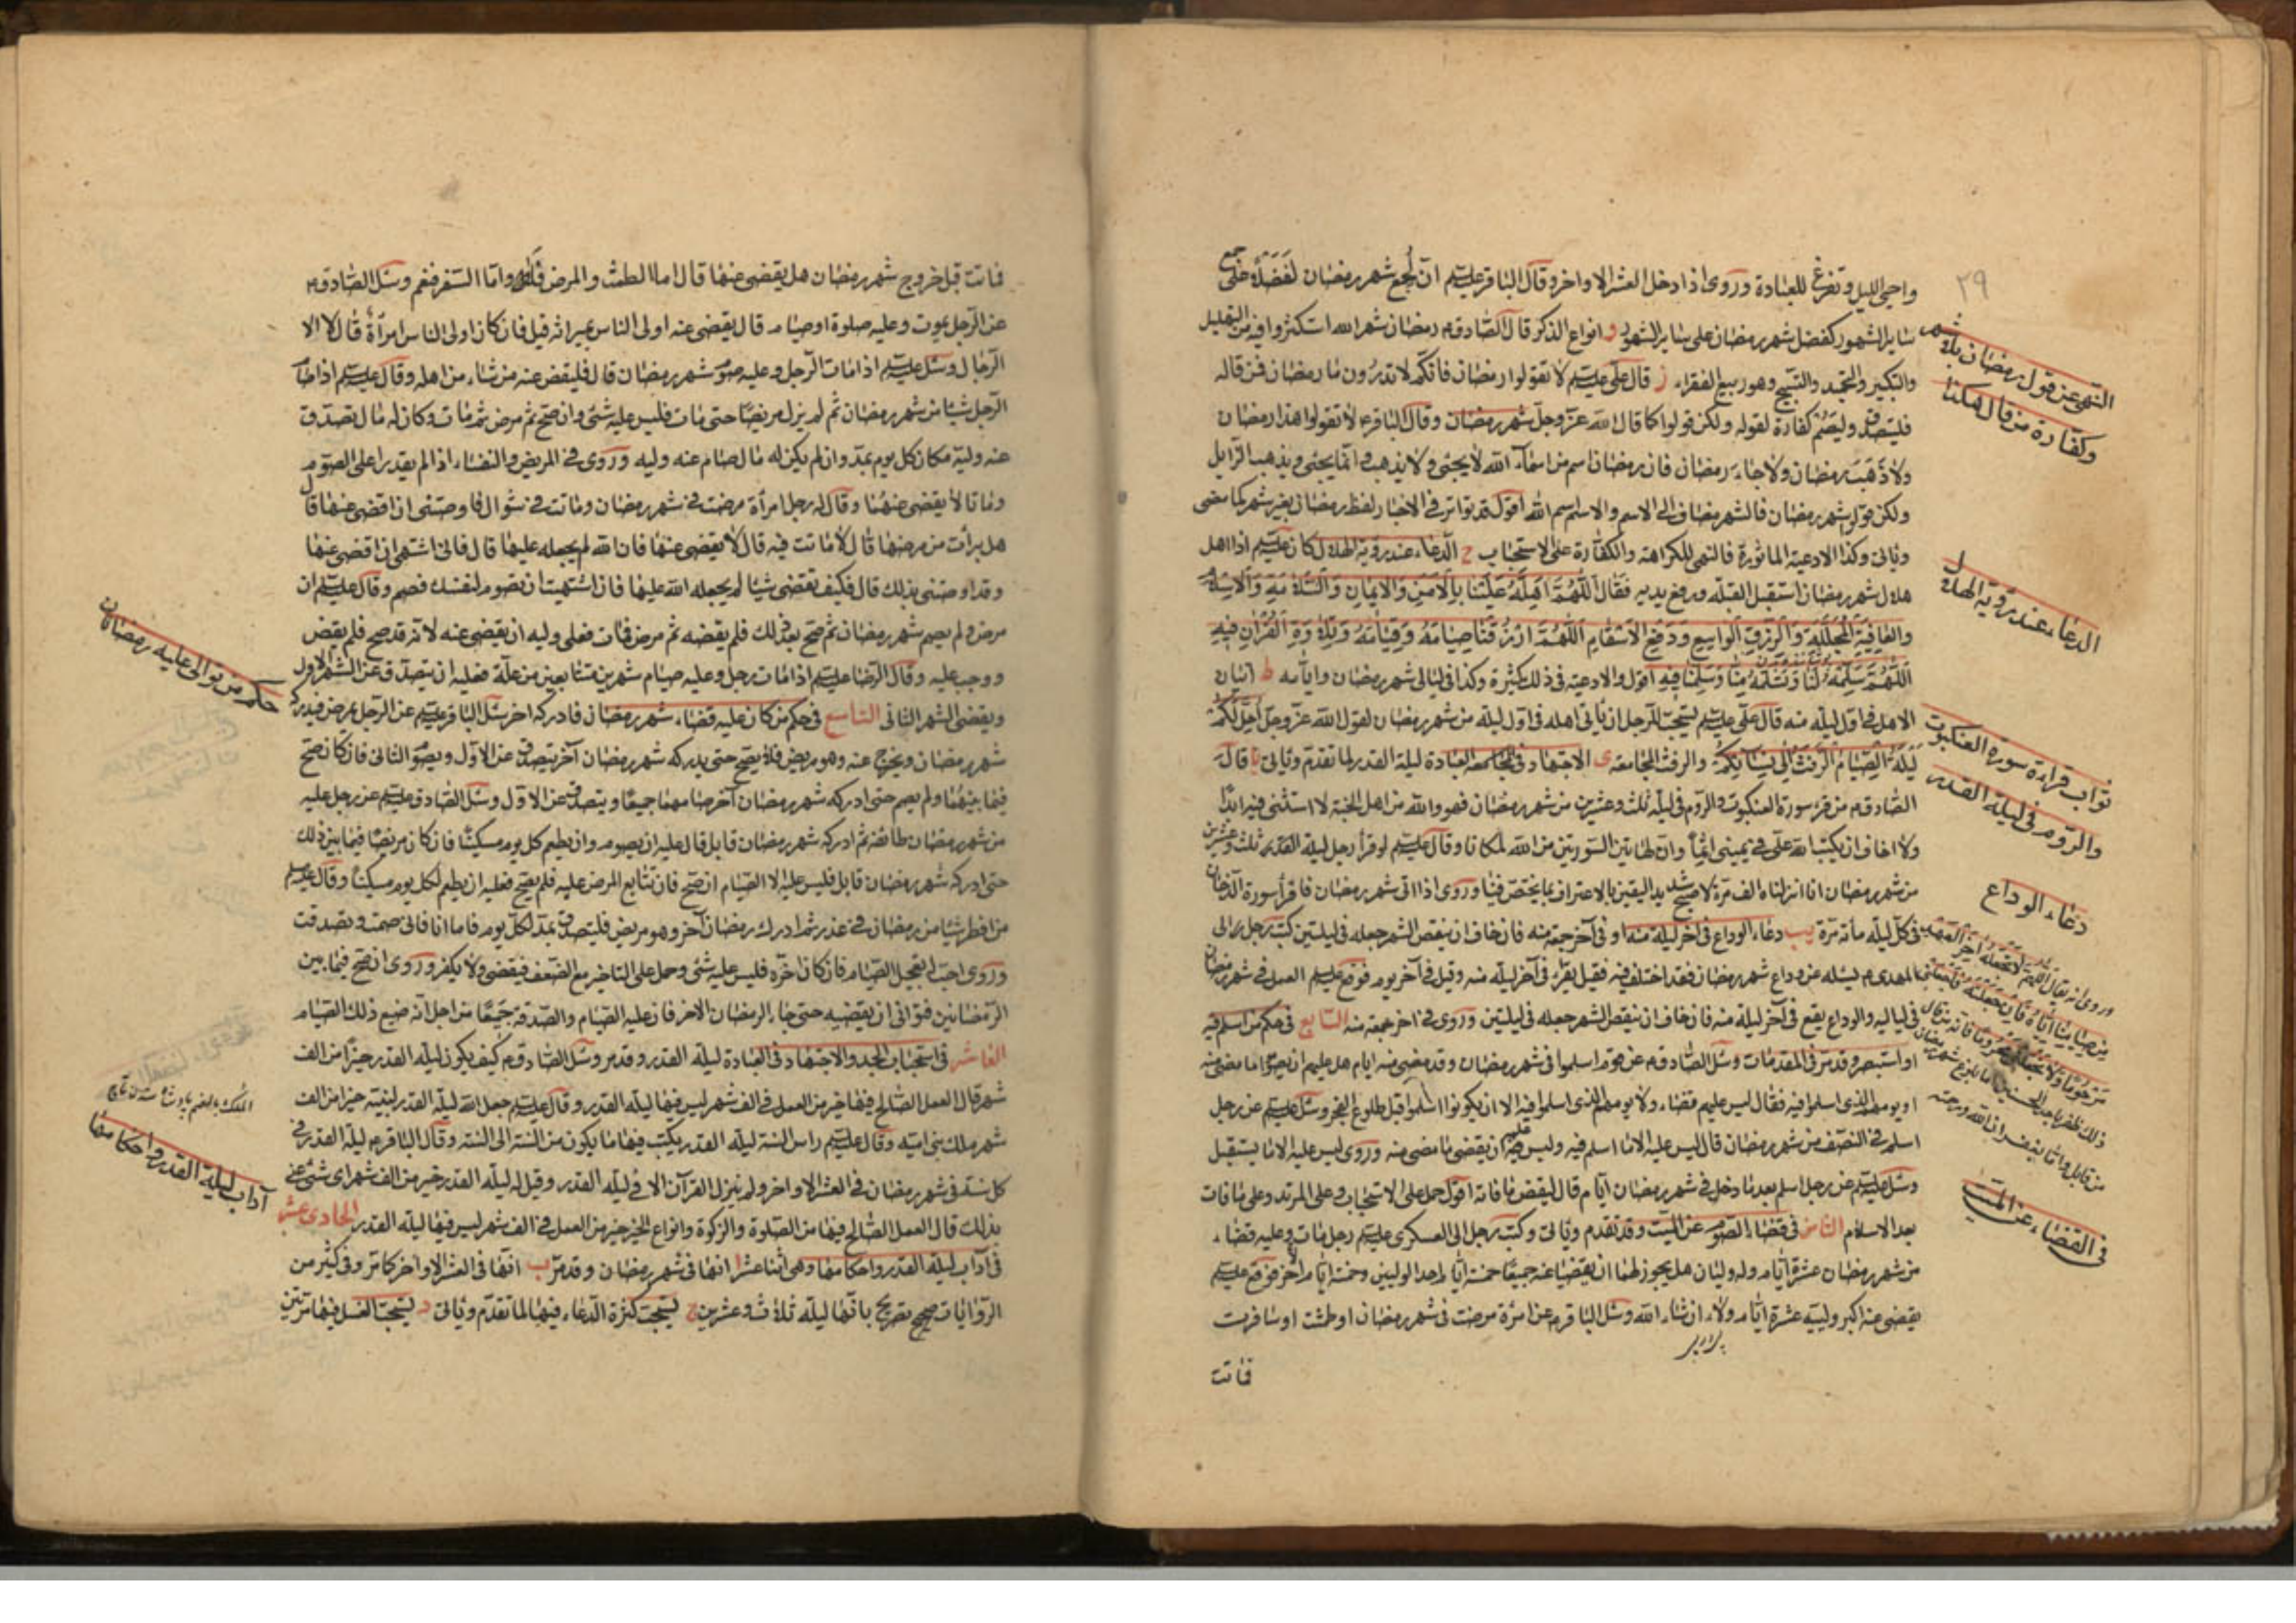 ٢٩
واحيى الليل وتفرغ للعبادة وروى اذا دخل العشر الاواخر وقال الباقر عليه السلم ان لجمع شهر رمضان لفضلا على جمع
ساير الشهور كفضل شهر رمضان على ساير الشهور و انواع الذكر قال الصادق م رمضان شهر الله استكثروا فيه من التهليل
والتكبير والتحميد والتسبيح وهو ربيع الفقراء ز قال على عليه السلم لا تقولوا رمضان فانكم لا تدرون ما رمضان فمن قاله
فليتصدق وليصم كفارة لقوله ولكن قولوا كما قال الله عز وجل شهر رمضان وقال الباقر ع لا تقولوا هذا رمضان
ولا ذهب رمضان ولا جاء رمضان فان رمضان اسم من اسماء الله لا يجئ ولا يذهب انما يجئ ويذهب الزايل
ولكن قولوا شهر رمضان فالشهر مضاف الى الاسم والاسم اسم الله اقول قد تواتر فى الاخبار لفظ رمضان بغير شهر كما مضى
وياتى وكذا الادعية الماثورة فالنهى للكراهة والكفارة على الاستحباب ح الدعاء عند رؤية الهلال كان عليه السلم اذا اهل
هلال شهر رمضان استقبل القبلة ورفع يديه فقال اللهم اهله علينا بالامن والايمان والسلامة والاسلام
والعافية المجللة والرزق الواسع ودفع الاسقام اللهم ارزقنا صيامه وقيامه وتلاوة القران فيه
اللهم سلمه لنا وتسلمه منا وسلمنا فيه اقول والادعية فى ذلك كثيرة وكذا فى ليالى شهر رمضان وايامه ط اتيان
الاهل فى اول ليلة منه قال على عليه السلم يستحب للرجل ان ياتى اهله فى اول ليلة من شهر رمضان لقول الله عز وجل احل لكم
ليلة الصيام الرفث الى نسائكم والرفث المجامعة ى الاجتهاد فى العبادة ليلة القدر لما تقدم وياتى يا قال
الصادق م من قرء سورة العنكبوت والروم فى ليلة ثلث وعشرين من شهر رمضان فهو والله من اهل الجنة لا استثنى فيه ابدا
ولا اخاف ان يكتب الله على فى يمينى اثما وان لهاتين السورتين من الله لمكانا وقال عليه السلم لو قرأ رجل ليلة القدر ثلث وعشرين
من شهر رمضان انا انزلناه الف مرة لاصبح شديد اليقين بالاعتراف بما يختص فينا وروى اذا اتى شهر رمضان فاقرأ سورة الدخان
فى كل ليلة مأة مرة يب دعاء الوداع فى اخر ليلة منه او فى آخر جمعة منه فان خاف ان ينقص الشهر جعله فى ليلتين كتب رجل الى
المهدى م يسئله عن وداع شهر رمضان فقد اختلف فيه فقيل يقرء فى آخر ليلة منه وقيل فى آخر يوم فوقع عليه السلم العمل فى شهر رمضان
فى لياليه والوداع يقع فى آخر ليلة منه فان خاف ان ينقص الشهر جعله فى ليلتين وروى فى اخر جمعة منه السابع فى حكم من اسلم فيه
او استبصر وقد مر فى المقدمات وسئل الصادق م عن قوم اسلموا فى شهر رمضان وقد مضى منه ايام هل عليهم ان يصوموا ما مضى منه
او يومهم الذى اسلموا فيه فقال ليس عليهم قضاء ولا يومهم الذى اسلموا فيه الا ان يكونوا اسلموا قبل طلوع الفجر وسئل عليه السلم عن رجل
اسلم فى النصف من شهر رمضان قال ليس عليه الا ما اسلم فيه وليس عليه ان يقضى ما مضى منه وروى ليس عليه الا ما يستقبل
وسئل عليه السلم عن رجل اسلم بعد ما دخل فى شهر رمضان ايام قال ليقض ما فاته اقول حمل على الاستحباب وعلى المرتد وعلى ما فات
بعد الاسلام الثامن فى قضاء الصوم عن الميت وقد تقدم وياتى وكتب رجل الى العسكرى عليه السلم رجل مات وعليه قضاء
من شهر رمضان عشرة ايام وله وليان هل يجوز لهما ان يقضيا عنه جميعا خمسة ايام احد الوليين وخمسة ايام الآخر فوقع عليه السلم
يقضى عنه اكبر ولييه عشرة ايام ولاء ان شاء الله وسئل الباقر م عن امرءة مرضت فى شهر رمضان او طمثت او سافرت
فماتت
النهى عن قول رمضان بلا شهر
وكفارة من قال هكذا
الدعاء عند رؤية الهلال
ثواب قراءة سورة العنكبوت
والروم فى ليلة القدر
دعاء الوداع
وروى انه يقال اللهم لا تجعله آخر العهد
من صيامنا اياه فان جعلته فاجعلنى
مرحوما ولا تجعلنى محروما فانه من قال
ذلك ظفر باحدى الحسنيين اما ببلوغ شهر رمضان
من قابل واما بغفران الله ورحمته
فى القضاء عن الميت
فماتت قبل خروج شهر رمضان هل يقضى عنها قال اما الطمث والمرض فلا واما السفر فنعم وسئل الصادق م
عن الرجل يموت وعليه صلوة او صيام قال يقضى عنه اولى الناس بميراثه قيل فان كان اولى الناس امرأة قال لا الا
الرجال وسئل عليه السلم اذا مات الرجل وعليه صوم شهر رمضان قال فليقض عنه من شاء من اهله وقال عليه السلم اذا صام
الرجل شيئا من شهر رمضان ثم لم يزل مريضا حتى مات فليس عليه شئ وان صح ثم مرض ثم مات وكان له مال تصدق
عنه وليه مكان كل يوم بمد وان لم يكن له مال صام عنه وليه وروى فى المريض والنفساء اذا لم يقدرا على الصوم
وماتا لا يقضى عنهما وقال له رجل امرأة مرضت فى شهر رمضان وماتت فى شوال فاوصتنى ان اقضى عنها قال
هل برأت من مرضها قال لا ماتت فيه قال لا يقضى عنها فان الله لم يجعله عليها قال فانى اشتهى ان اقضى عنها
وقد اوصتنى بذلك قال فكيف تقضى شيئا لم يجعله الله عليها فان اشتهيت ان تصوم لنفسك فصم وقال عليه السلم ان
مرض ولم يصم شهر رمضان ثم صح بعد ذلك فلم يقضه ثم مرض فمات فعلى وليه ان يقضى عنه لانه قد صح فلم يقض
ووجب عليه وقال الرضا عليه السلم اذا مات رجل وعليه صيام شهرين متتابعين من علة فعليه ان يتصدق عن الشهر الاول
ويقضى الشهر الثانى التاسع فى حكم من كان عليه قضاء شهر رمضان فادركه اخر سئل الباقر عليه السلم عن الرجل يمرض فيدركه
شهر رمضان ويخرج عنه وهو مريض فلا يصح حتى يدركه شهر رمضان آخر يتصدق عن الاول ويصوم الثانى فان كان صح
فيما بينهما ولم يصم حتى ادركه شهر رمضان آخر صامهما جميعا ويتصدق عن الاول وسئل الصادق عليه السلم عن رجل عليه
من شهر رمضان طائفة ثم ادركه شهر رمضان قابل قال عليه ان يصوم وان يطعم كل يوم مسكينا فان كان مريضا فيما بين ذلك
حتى ادركه شهر رمضان قابل فليس عليه الا الصيام ان صح فان تتابع المرض عليه فلم يصح فعليه ان يطعم لكل يوم مسكينا وقال عليه السلم
من افطر شيئا من رمضان فى عذر ثم ادرك رمضان آخر وهو مريض فليتصدق بمد لكل يوم فاما انا فانى صمت وتصدقت
وروى احب تعجيل الصيام فان كان اخره فليس عليه شئ وحمل على التاخير مع الضعف فيقضى ولا يكفر وروى ان صح فيما بين
الرمضانين فتوانى ان يقضيه حتى جاء الرمضان الاخر فان عليه الصيام والصدقة جميعا من اجل انه ضيع ذلك الصيام
العاشر فى استحباب الجد والاجتهاد فى العبادة ليلة القدر وقد مر وسئل الصادق م كيف يكون ليلة القدر خيرا من الف
شهر قال العمل الصالح فيها خير من العمل فى الف شهر ليس فيها ليلة القدر وقال عليه السلم جعل الله ليلة القدر لنبيه خيرا من الف
شهر ملك بنى امية وقال عليه السلم راس السنة ليلة القدر يكتب فيها ما يكون من السنة الى السنة وقال الباقر م ليلة القدر فى
كل سنة فى شهر رمضان فى العشر الاواخر ولم ينزل القرآن الا فى ليلة القدر وقيل له ليلة القدر خير من الف شهر اى شئ عنى
بذلك قال العمل الصالح فيها من الصلوة والزكوة وانواع الخير خير من العمل فى الف شهر ليس فيها ليلة القدر الحادى عشر
فى آداب ليلة القدر واحكامها وهى اثنا عشر ا انها فى شهر رمضان وقد مر ب انها فى العشر الاواخر كما مر وفى كثير من
الروايات تصريح بانها ليلة ثلاث وعشرين ج يستحب كثرة الدعاء فيها لما تقدم وياتى د يستحب الغسل فيها مرتين
حكم من توالى عليه رمضانان
آداب ليلة القدر واحكامها